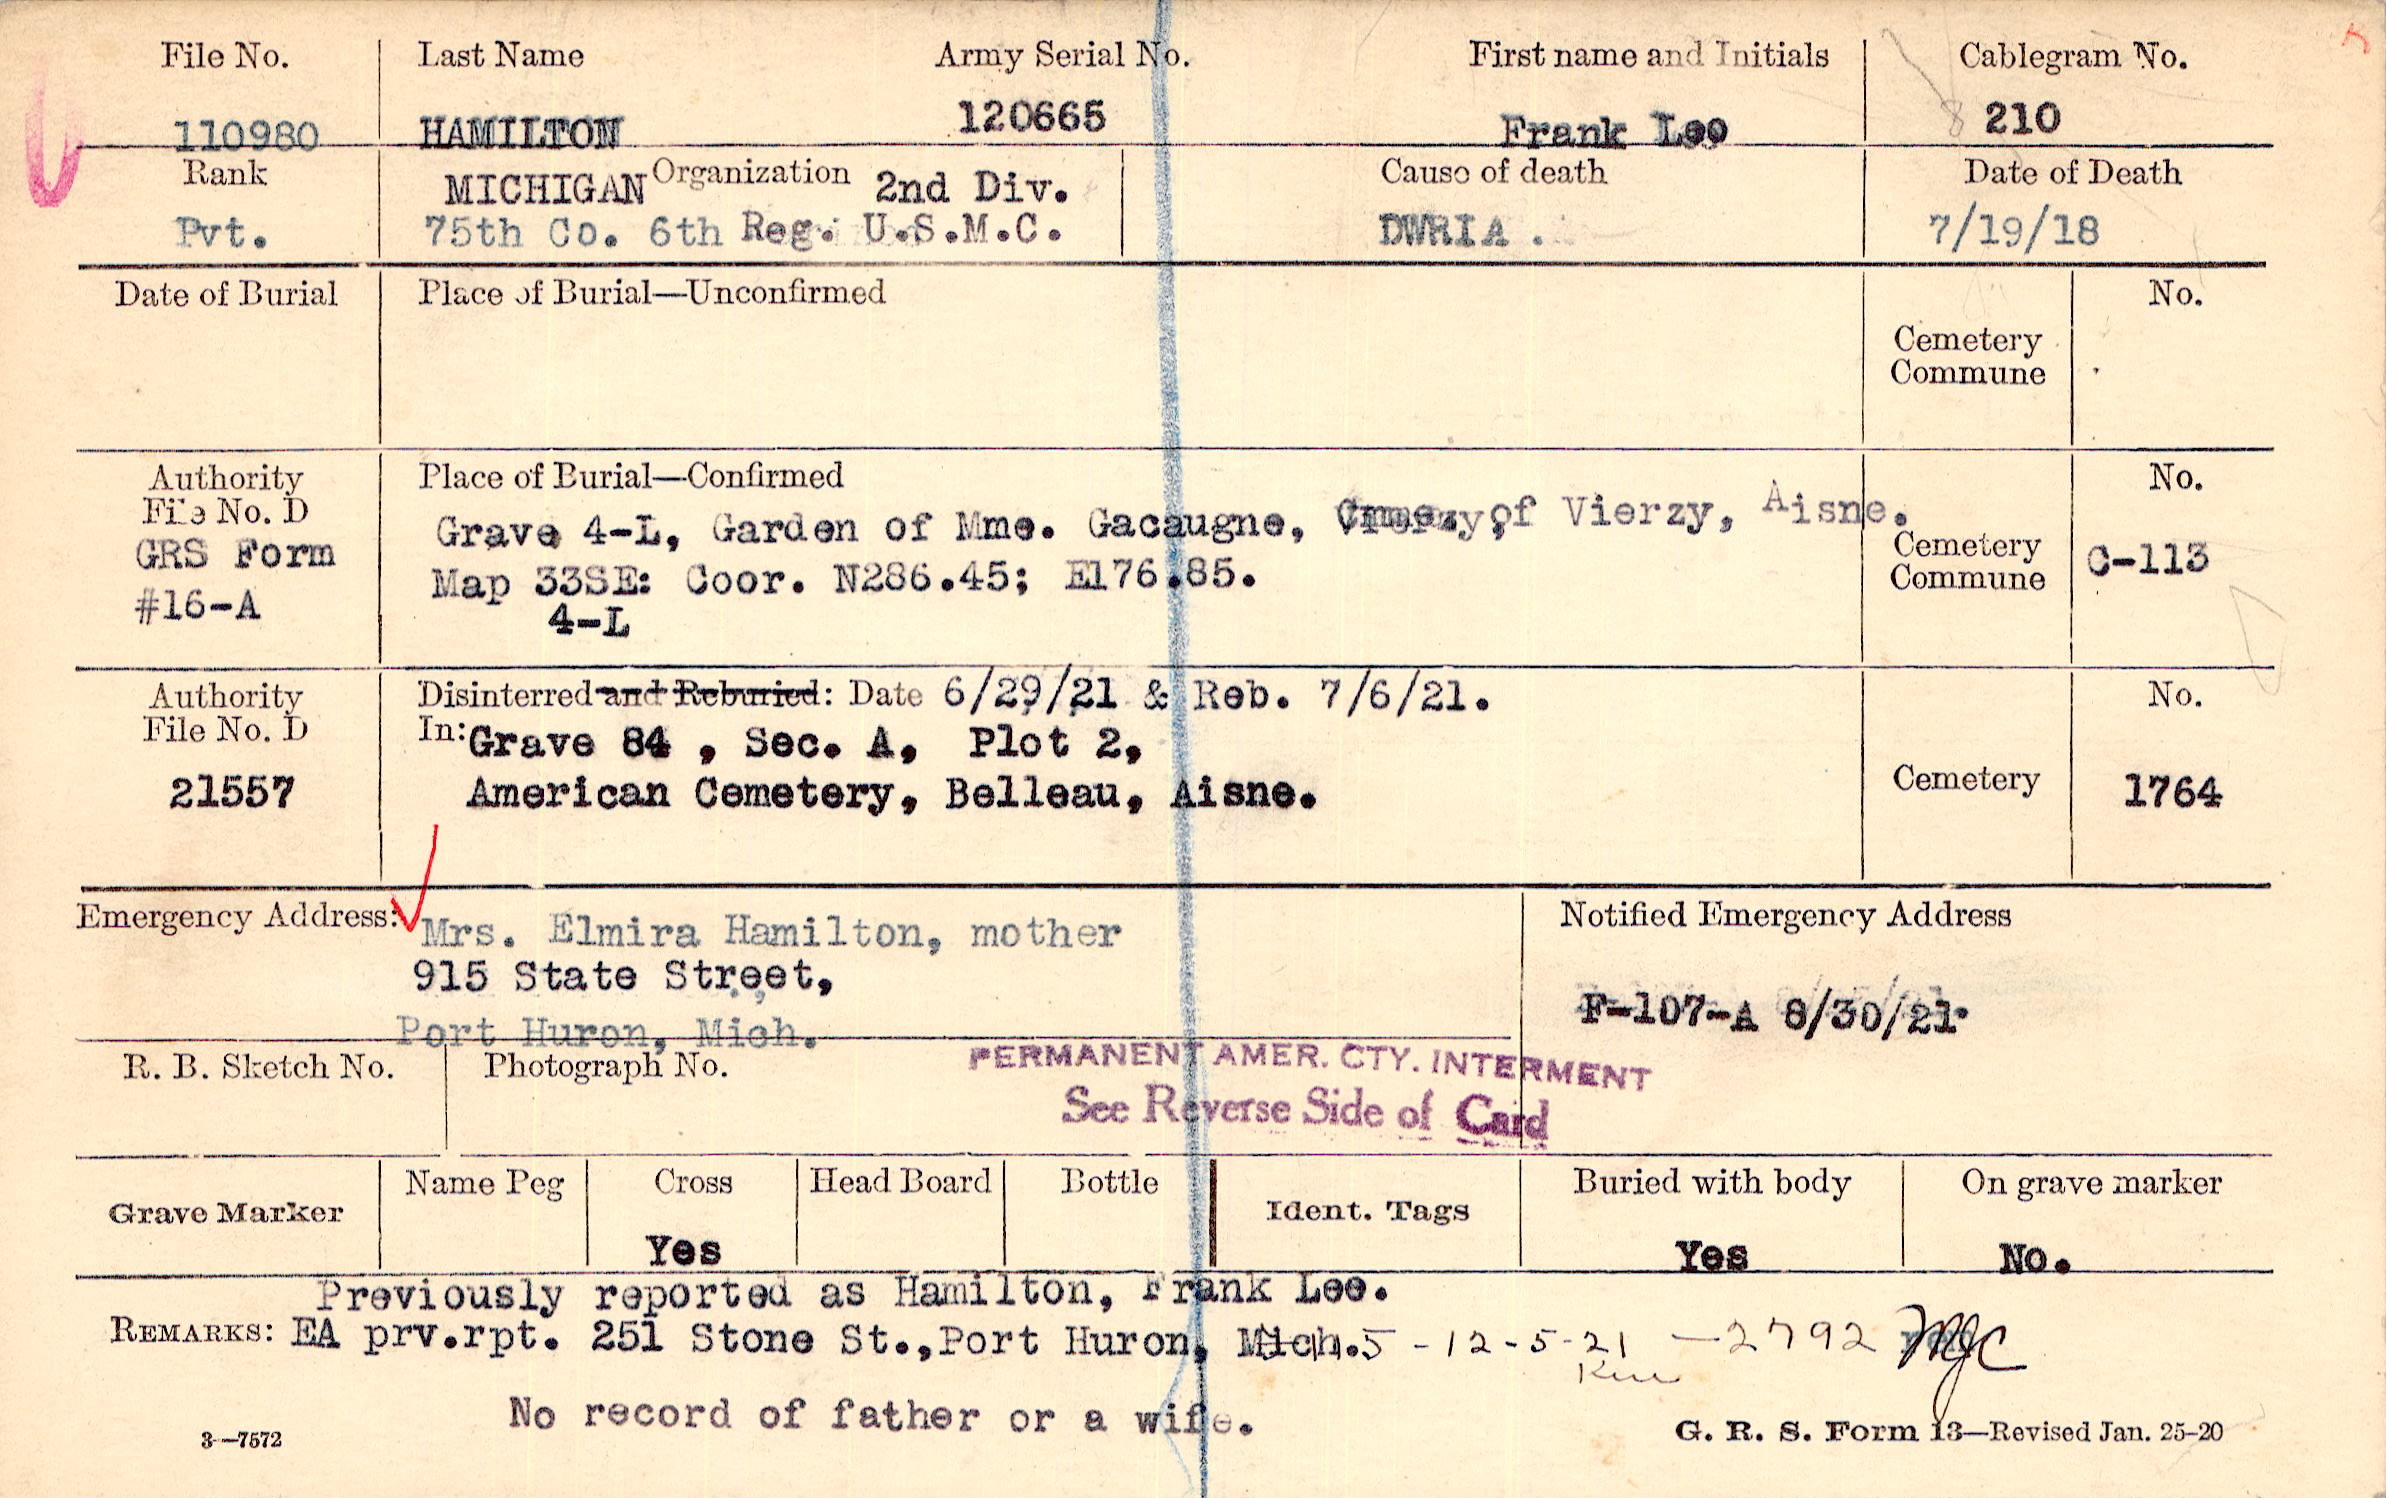 File No. Last Name Army Serial No. First name and Initials Cablegram No.
110980 HAMILTON 120665 Frank Leo 210
Rank Organization Cause of death Date of Death
MICHIGAN 2nd Div.
Pvt. 75th Co. 6th Reg. U.S.M.C. DWRIA. 7/19/18
Date of Burial Place of Burial—Unconfirmed No.
Cemetery
Commune
Authority Place of Burial—Confirmed No.
File No. D
Grave 4-L, Garden of Mme. Gacaugne, of Vierzy, Aisne.
GRS Form Cemetery
#16-A Map 33SE: Coor. N286.45; E176.85. Commune C-113
4-L
Authority Disinterred and Reburied: Date 6/29/21 & Reb. 7/6/21. No.
File No. D In: Grave 84 , Sec. A, Plot 2,
21557 American Cemetery, Belleau, Aisne. Cemetery 1764
Emergency Address: Mrs. Elmira Hamilton, mother Notified Emergency Address
915 State Street,
Port Huron, Mich. F-107-A 8/30/21.
R. B. Sketch No. Photograph No.
PERMANENT AMER. CTY. INTERMENT
See Reverse Side of Card
Grave Marker Name Peg Cross Head Board Bottle Ident. Tags Buried with body On grave marker
Yes Yes No.
Previously reported as Hamilton, Frank Lee.
REMARKS: EA prv.rpt. 251 Stone St.,Port Huron, Mich. 5 - 12-5-21 - 2792
No record of father or a wife.
3—7572 G. R. S. Form 13—Revised Jan. 25-20